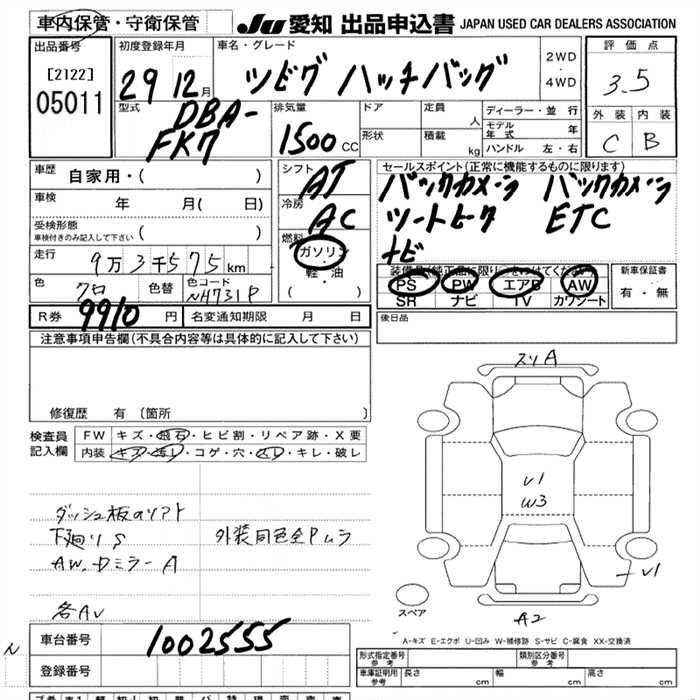 車内保管・守衛保管
JU 愛知 出品申込書 JAPAN USED CAR DEALERS ASSOCIATION
出品番号
[2122]
05011
初度登録年月
29 12月
車名・グレード
シビック ハッチバック
2WD
・
4WD
評価点
3.5
型式
DBA-
FK7
排気量
1500 CC
ドア
定員
人
形状
積載
kg
ディーラー・並行
モデル
年式
年
ハンドル 左・右
外装 内装
C B
車歴
自家用・( )
車検
年 月( 日)
受検形態
車検付きのみ記入して下さい ( )
走行
9万3千575km
色
クロ
色替
色コード
NH731P
シフト
AT
冷房
AC
燃料
ガソリン
・
軽・油
( )
セールスポイント(正常に機能するものに限ります)
バックカメラ バックカメラ
シートヒータ ETC
ナビ
装備品(純正品に限り○をつけてください)
PS PW エアB AW
SR ナビ TV カワシート
新車保証書
有・無
R券 9910 円
名変通知期限 月 日
後日品
注意事項申告欄(不具合内容等は具体的に記入して下さい)
修復歴 有 〔箇所 〕
検査員
記入欄
FW キズ・飛石・ヒビ割・リペア跡・X要
内装 キズ・汚レ・コゲ・穴・スレ・キレ・破レ
ダッシュ板のソフト
下廻りS
外装同色全Pムラ
AW,Dミラー A
各AV
スリA
V1
W3
V1
A2
スペア
A-キズ E-エクボ U-凹み W-補修跡 S-サビ C-腐食 XX-交換済
N
車台番号
1002555
登録番号
形式指定番号
参考
類別区分番号
参考
車庫証明用
参考
長さ
cm
幅
cm
高さ
cm